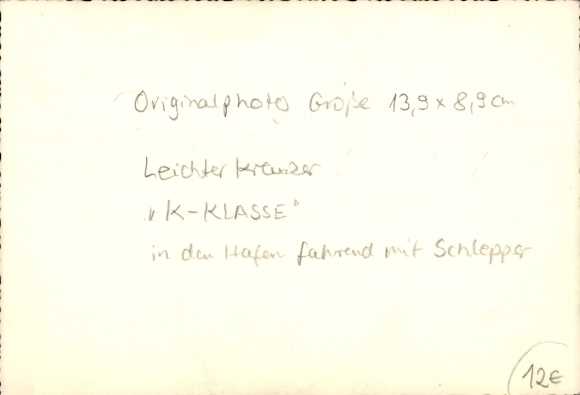 Originalphoto Größe 13,9 x 8,9 cm
Leichter Kreuzer
„K-KLASSE"
in den Hafen fahrend mit Schlepper
12€